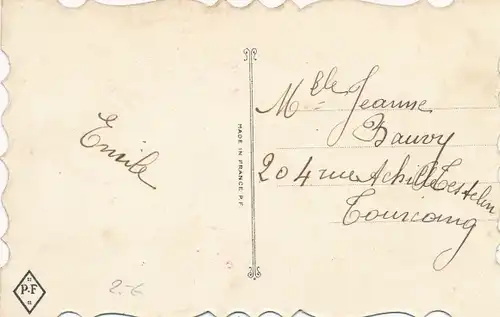 Emile
Mlle Jeanne
Bauvy
204 rue Achille Testelin
Tourcoing
MADE IN FRANCE P.F.
P.F
2.-€